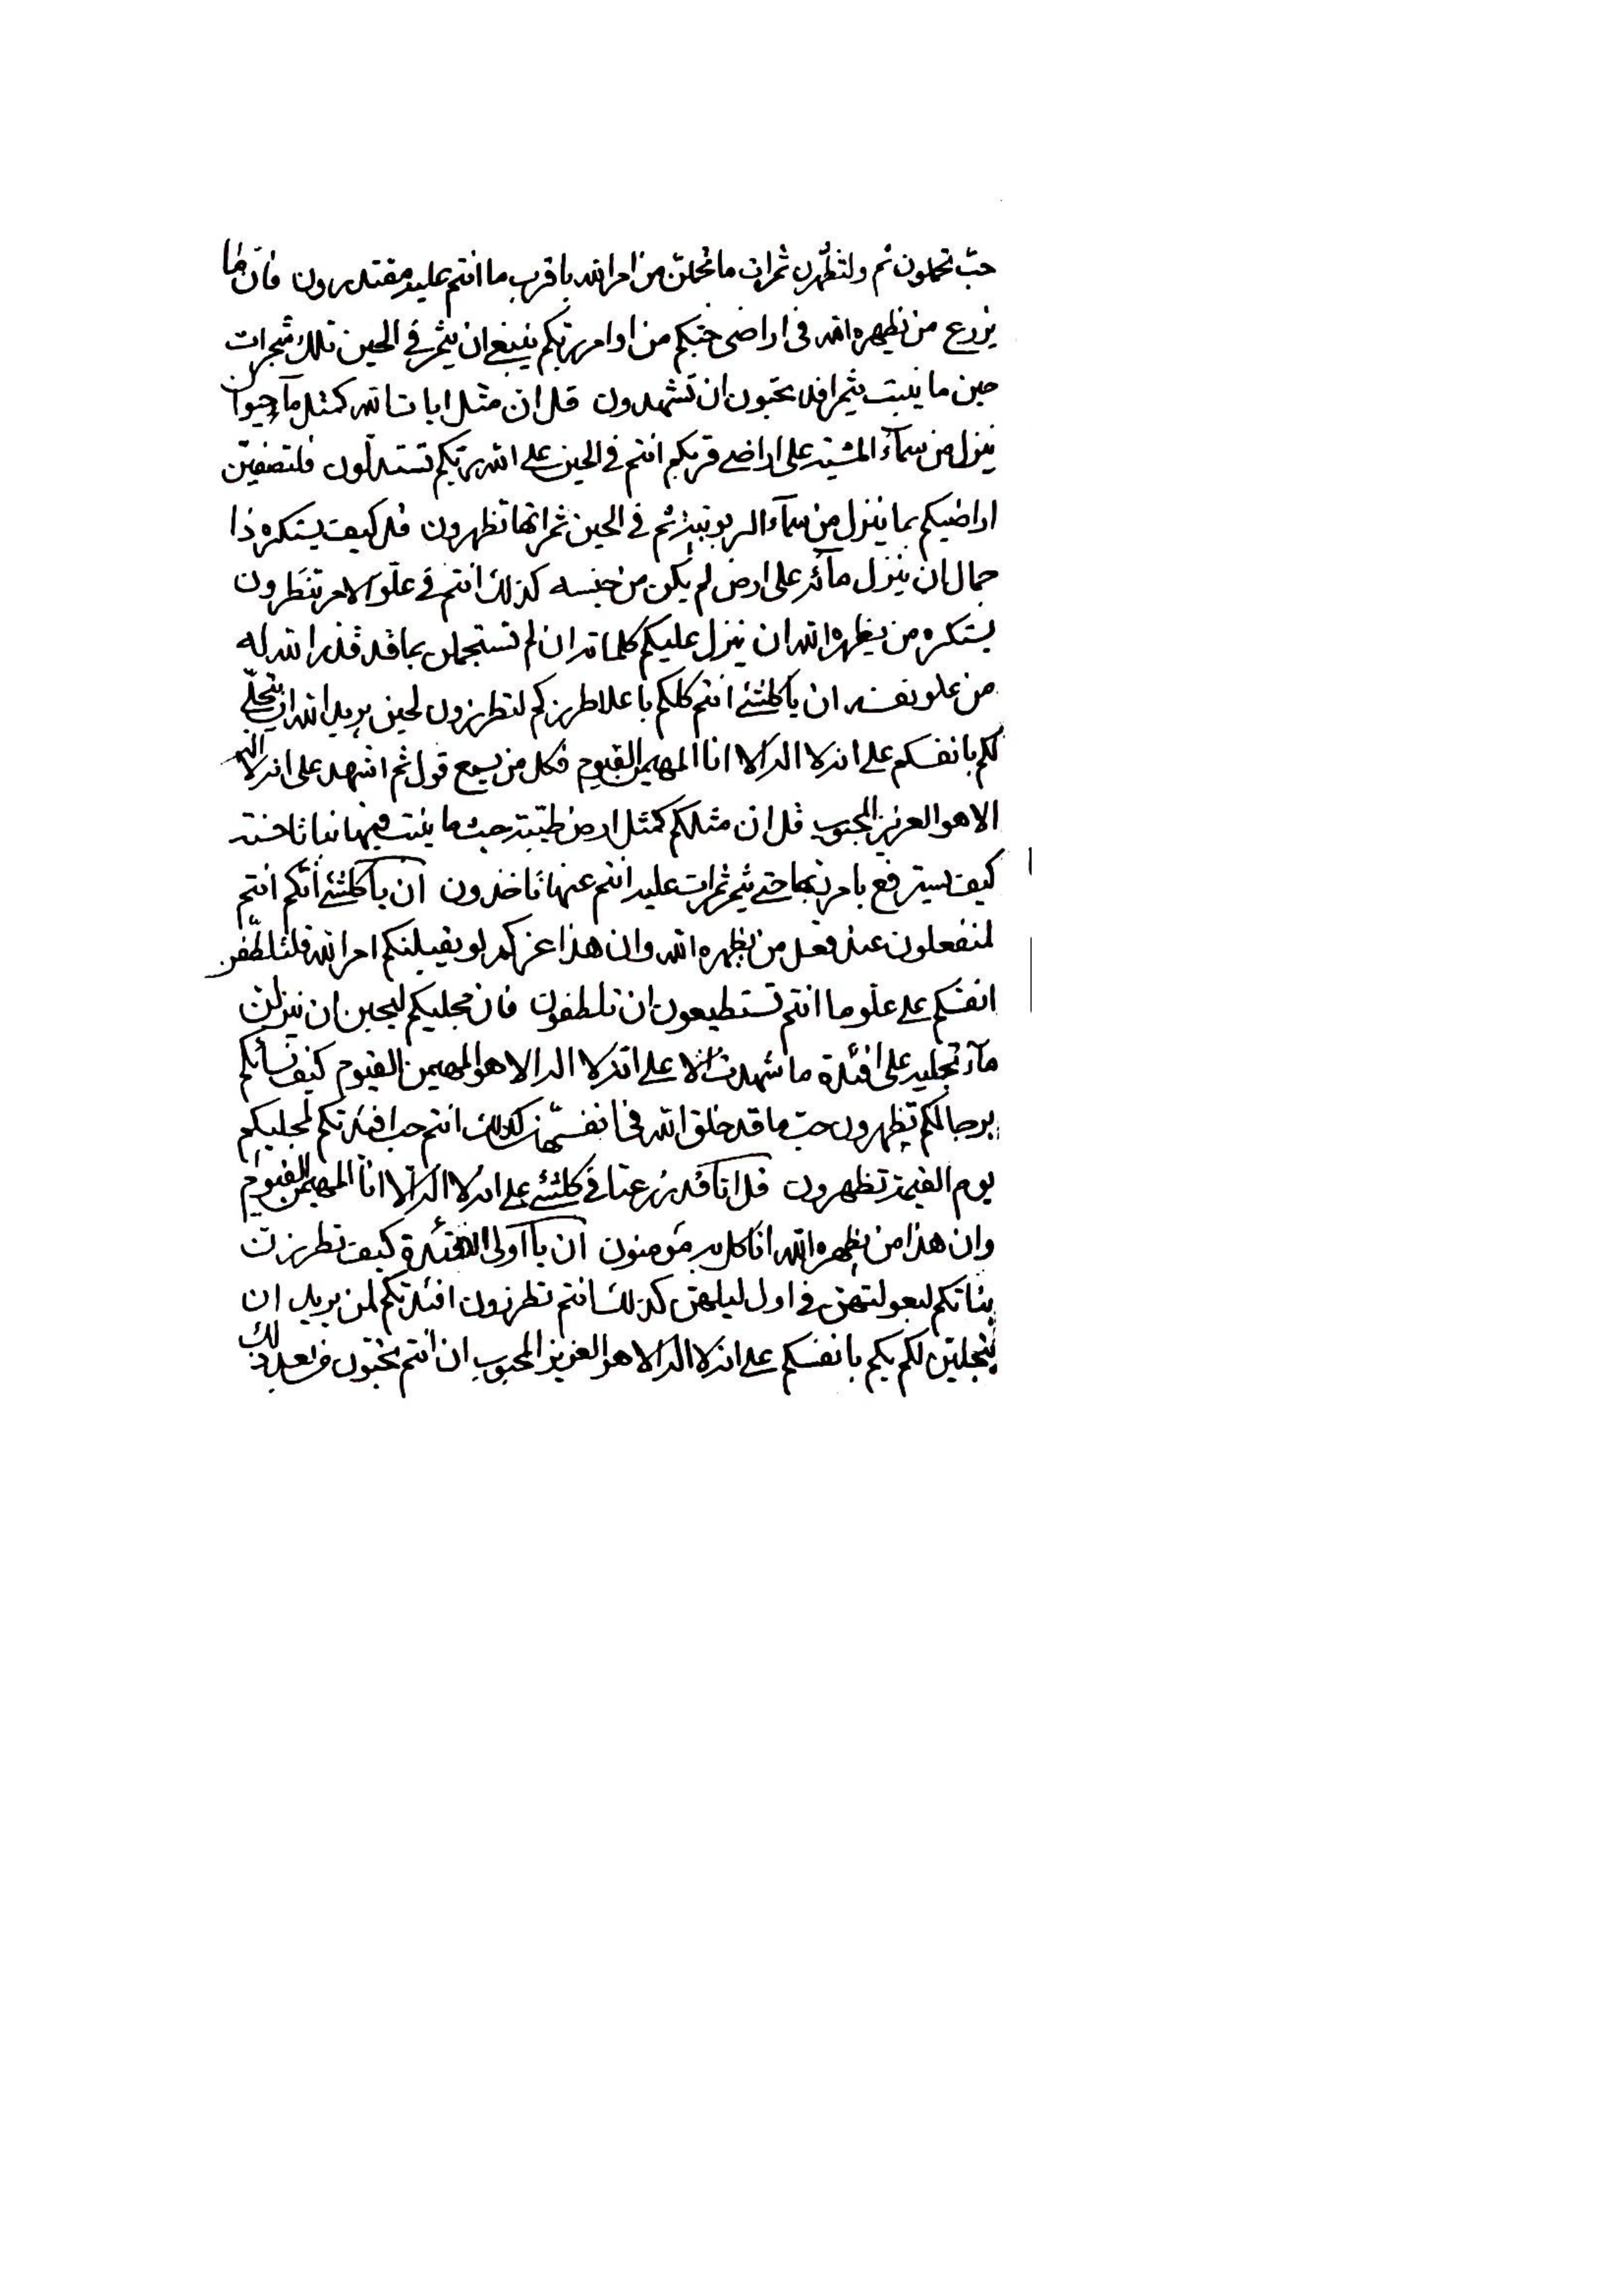 حبّ تحملون ثم ولتظهرن ثمرات ما تحملن من امر الله باقرب ما انتم عليه مقتدرون فان ما
يزرع من يظهره الله فى اراضى حبكم من اوامر ربكم ينبغى ان يثمر فى الحين تلك شجرات
حين ما ينبت يثمر افلا تحبون ان تشهدون قل ان مثل ايات الله كمثل مآء حيوان
ينزل من سمآء المشية على اراضى قربكم انتم فى الحين على الله ربكم تستدلون فلتصفين
اراضيكم بما ينزل من سمآء الربوبية ثم فى الحين ثمراتها تظهرون قل كيف يستكره ذا
جمال ان ينزل مآئه على ارض لم يكن من جنسه كذلك انتم فى علو الامر تنظرون
يستكره من يظهره الله ان ينزل عليكم كلماته ان لم تستجملن بما قد قدر الله له
من علو نفسه ان يا كلشئ انتم كلكم باعلا طرزكم لتطرزون لحين يريد الله ان يتجلى
لكم بانفسكم على انه لا اله الا انا المهيمن القيوم فكل من يسمع قول ثم اشهد على انه لا اله
الا هو العزيز المحبوب قل ان مثلكم كمثل ارض طيبة حيث ما ينبت فيها نباتا حسنة
كيف يسترفع بامر ربها حتى يثمر ثمرات عليه انتم عنها تاخذون ان يا كلشئ انكم انتم
لمنفعلون عند فعل من يظهره الله وان هذا عزكم لو يقبلنكم امر الله فلتلطفن
انفسكم على علو ما انتم تستطيعون ان تلطفون فان مجليكم ليحبن ان ينزلن
مآء تجليه على افئدة ما شهدت الا على انه لا اله الا هو المهيمن القيوم كيف نسائكم
برجالكم تظهرون حب ما قد خلق الله فى انفسهن كذلك انتم حب افئدتكم لمجليكم
يوم القيمة تظهرون قل انا قد زرعنا فى كلشئ على انه لا اله الا انا المهيمن القيوم
وان هذا من يظهره الله انا كل به مؤمنون ان يا اولى الافئدة كيف تطرزن
بناتكم لبعولتهن فى اول ليلهن كذلك انتم تطرزون افئدتكم لمن يريد ان
يتجلين لكم بكم بانفسكم على انه لا اله الا هو العزيز المحبوب ان انتم تحبون من بعد ذلك